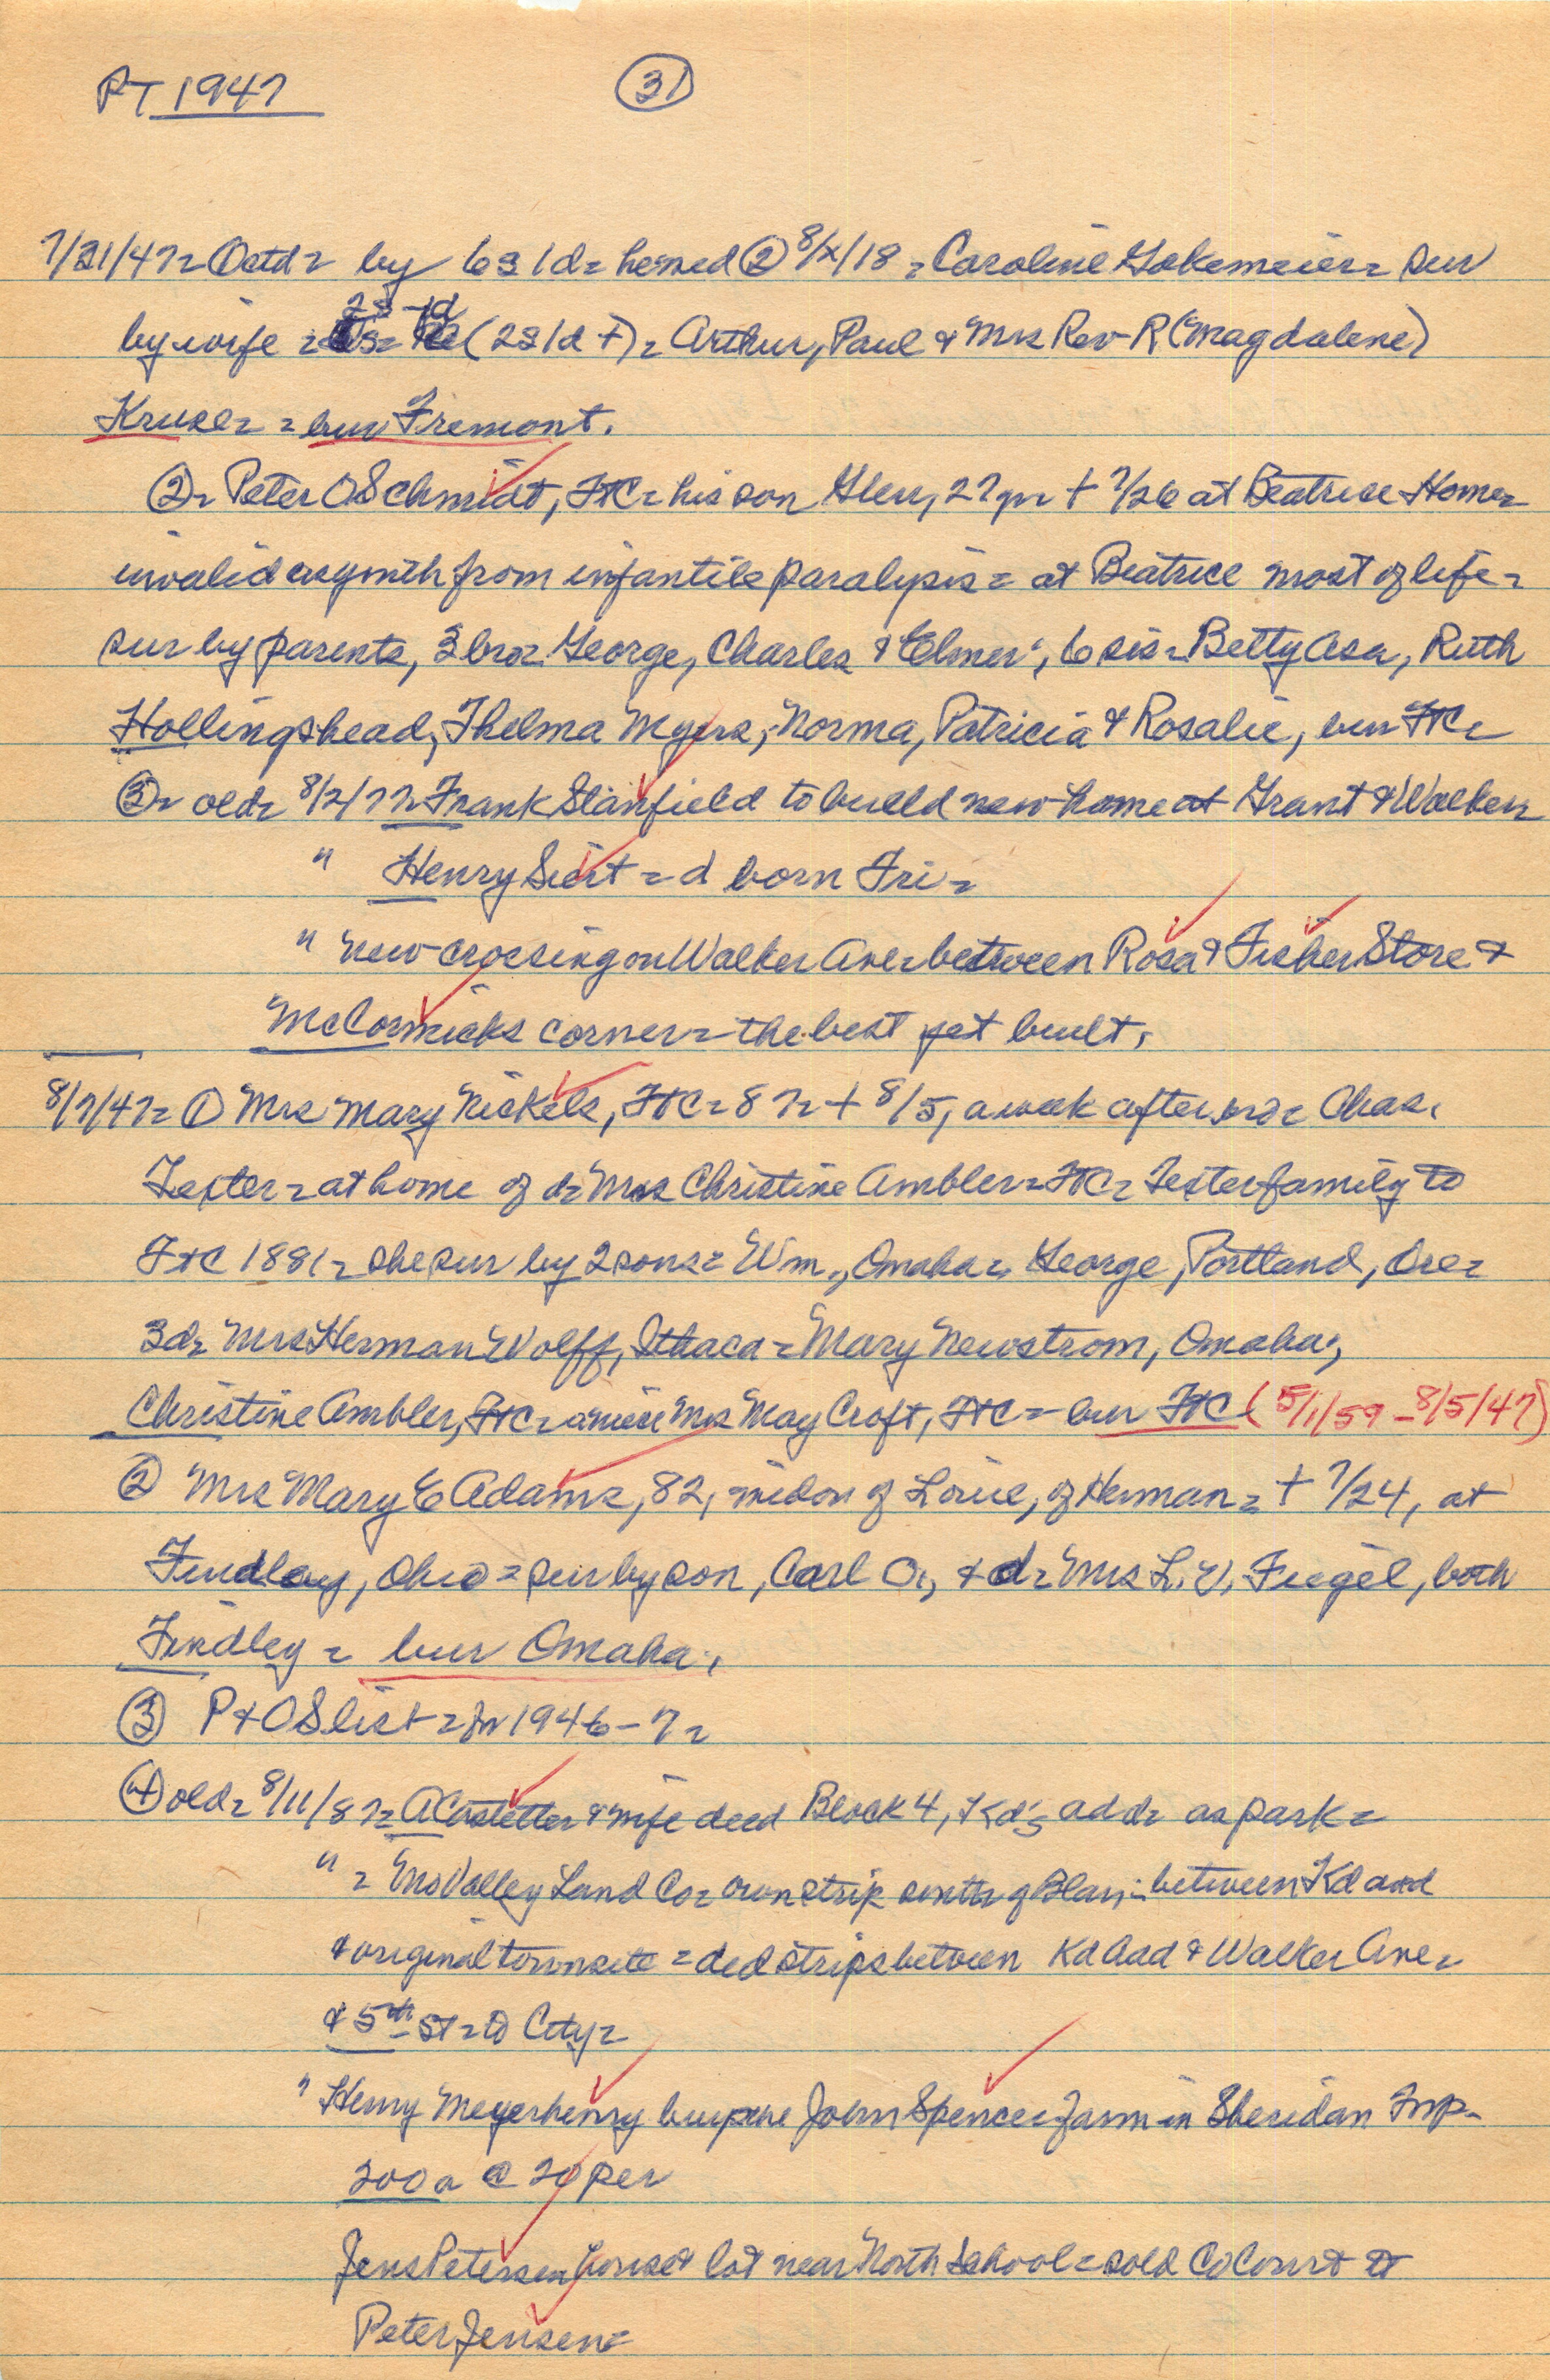 PT 1947 (31)
7/31/47= Octd= by 6s 1d= he med ② 8/x/18 = Caroline Gokemeier= sur
2s 1d
by wife = (2s 1d +)= Arthur, Paul & Mrs Rev R (Magdalene)
Kruse= = bur Fremont.
②= Peter O Schmidt, FtC= his son Glen, 27 yr + 7/26 at Beatrice Home=
invalid as ynth from infantile paralysis= at Beatrice most of life=
sur by parents, 3 bro= George, Charles & Elmer, 6 sis= Betty Asa, Ruth
Hollingshead, Thelma Myers, Norma, Patricia & Rosalie, bur FtC=
③= old= 8/2/77= Frank Stanfield to build new home at Grant & Walker
" Henry Siert = d born Fri=
" new crossing on Walker Ave= between Rosa & Fisher Store &
McCormicks corner= the best yet built.
8/7/47= ① Mrs Mary Nickels, FtC= 87= + 8/5, a week after bro= Chas.
Tester= at home of d= Mrs Christine Ambler= FtC= Tester family to
FtC 1881= she sur by 2 sons= Wm., Omaha=, George, Portland, Ore=
3d= Mrs Herman Wolff, Ithaca= Mary Newstrom, Omaha,
Christine Ambler, FtC= a niece Mrs May Croft, FtC= bur FtC (5/1/59 - 8/5/47)
② Mrs Mary E Adams, 82, widow of Louie, of Herman= + 7/24, at
Findlay, Ohio= sur by son, Carl O., & d= Mrs L.V. Fiegel, both
Findley = bur Omaha.
③ P & OS list= for 1946-7=
④ old= 8/11/87= A Castetter & wife deed Block 4, Kd's add= as park=
" = Mo Valley Land Co= own strip south of Blair= between Kd and
& original townsite = ded strips between Kd Add & Walker Ave=
& 5th St= to City=
" Henry Meyerhenry buys the John Spencer farm in Sheridan Twp-
200a @ 20 per
Jens Petersen house & lot near North School= sold Co Court to
Peter Jensen=